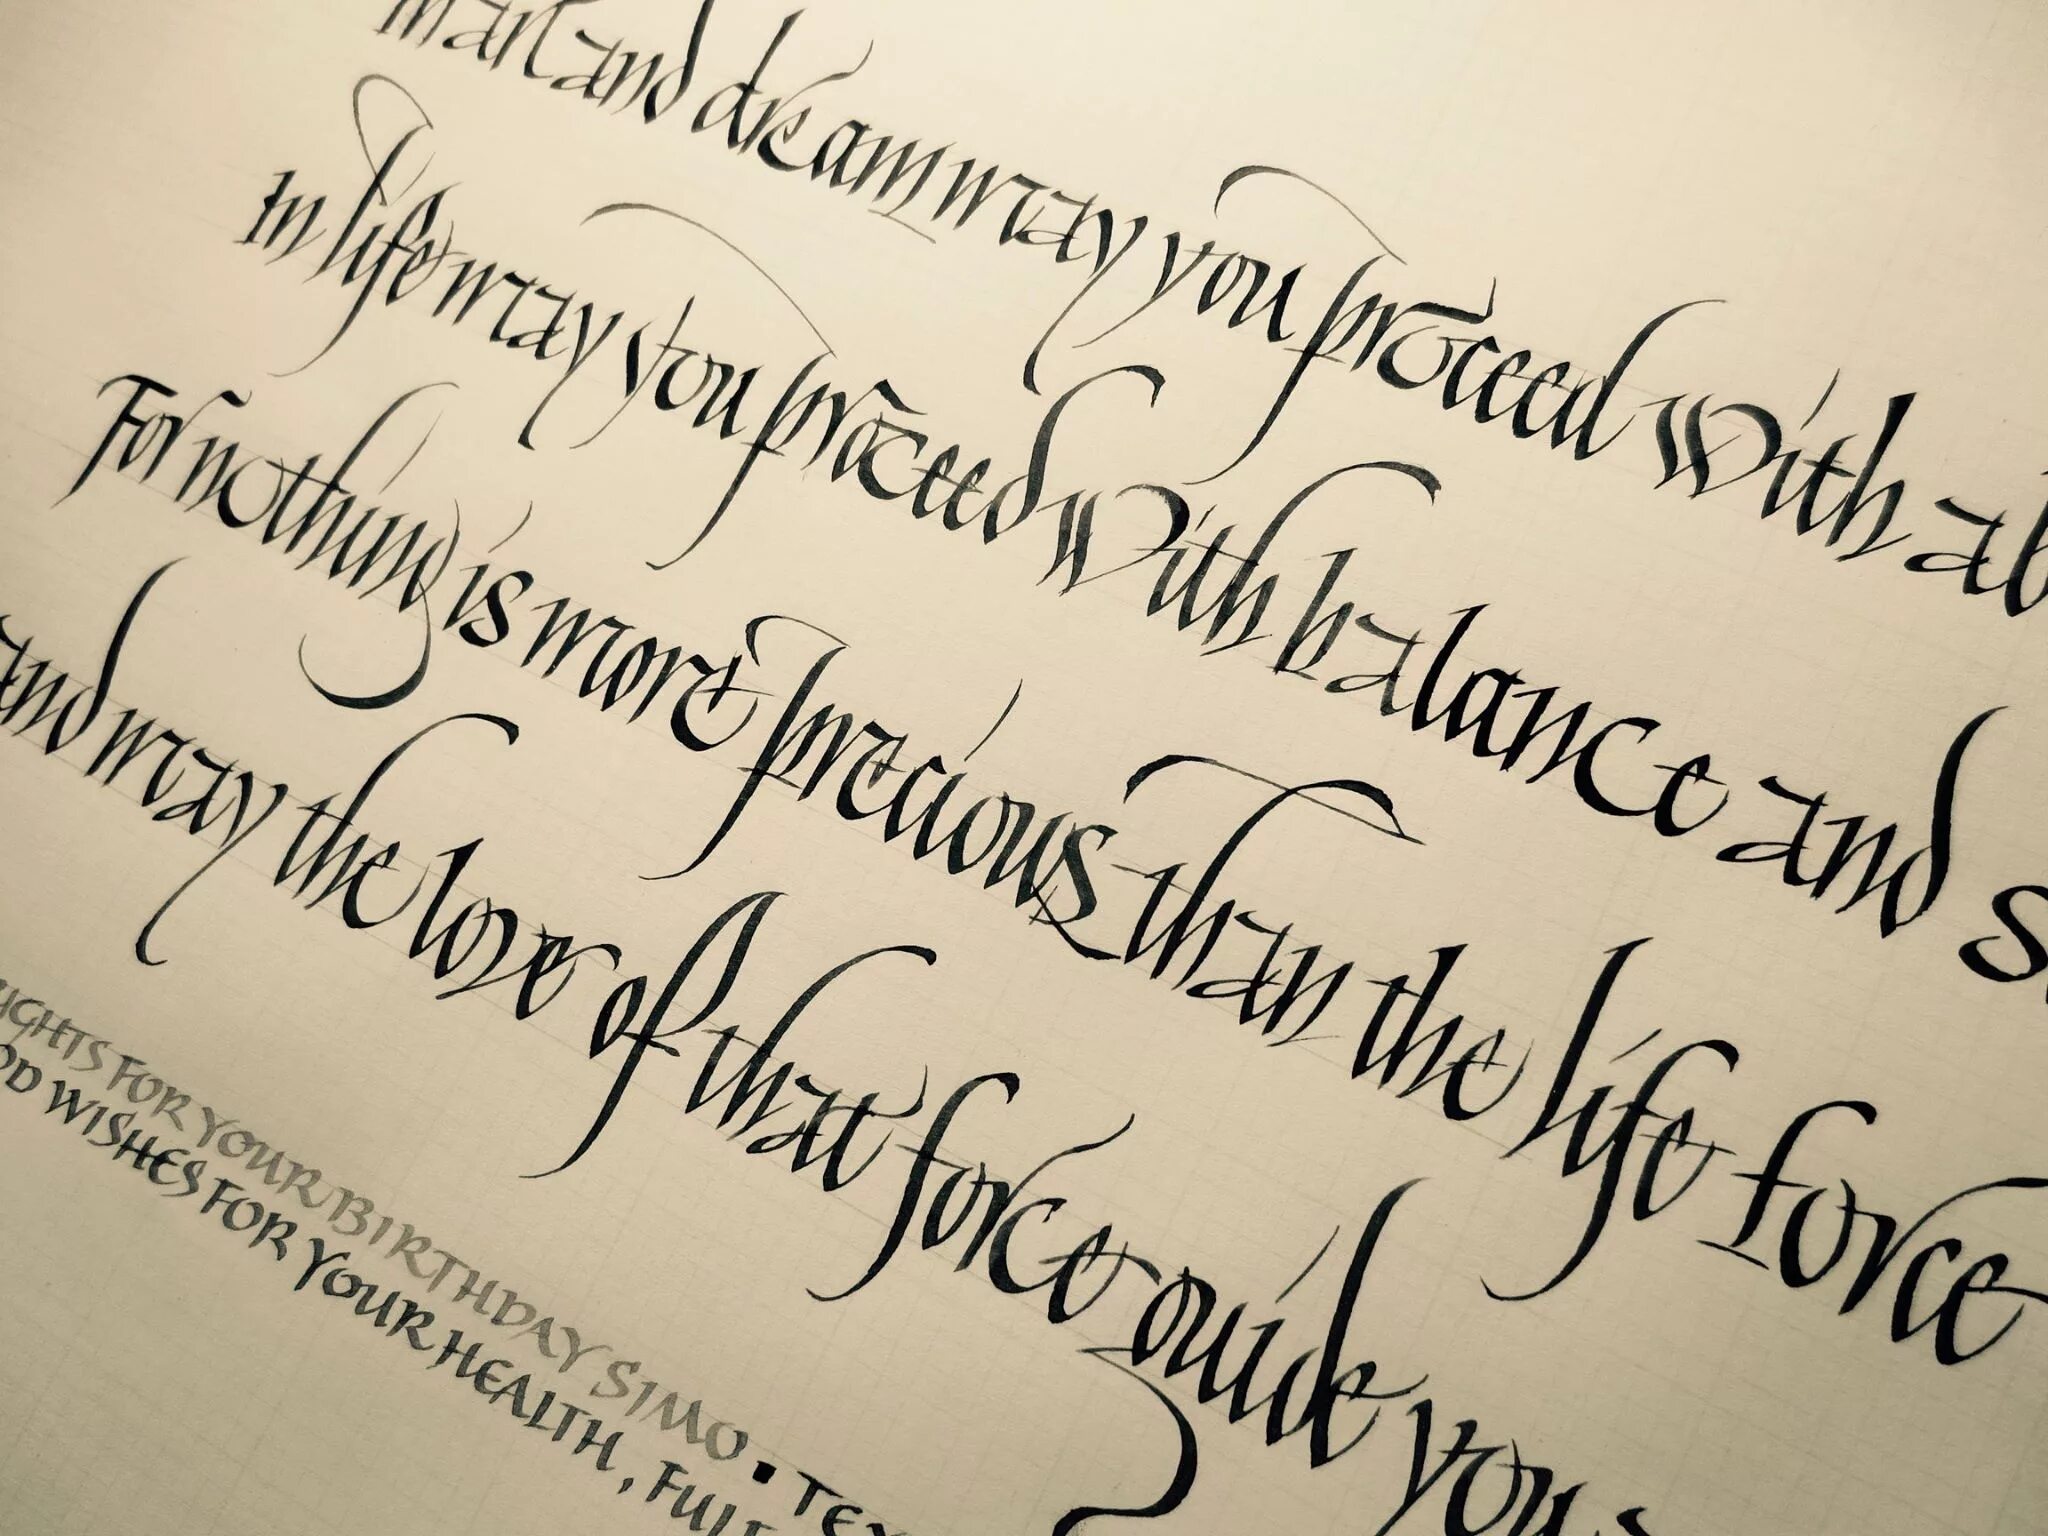 In art and dream may you proceed with ab
In life may you proceed with balance and s
For nothing is more precious than the life force
and may the love of that force guide you
IGHTS FOR YOUR BIRTHDAY SIMO. TEX
OD WISHES FOR YOUR HEALTH, FULF